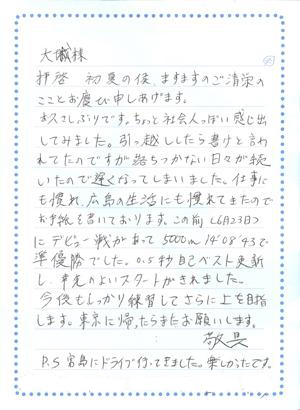 大職様
拝啓 初夏の候、ますますのご清栄の
こととお慶び申しあげます。
お久しぶりです。ちょっと社会人っぽい感じ出
してみました。引っ越ししたら書けと言わ
れてたのですが落ちつかない日々が続
いたので遅くなってしまいました。仕事に
も慣れ、広島の生活にも慣れてきたので
お手紙を書いております。この前(6月23日)
にデビュー戦があって5000m 14'08"43で
準優勝でした。0.5秒自己ベスト更新
し、幸先のよいスタートがきれました。
今後もしっかり練習してさらに上を目指
します。東京に帰ったらまたお願いします。
敬具
P.S 宮島にドライブ行ってきました。楽しかったです。